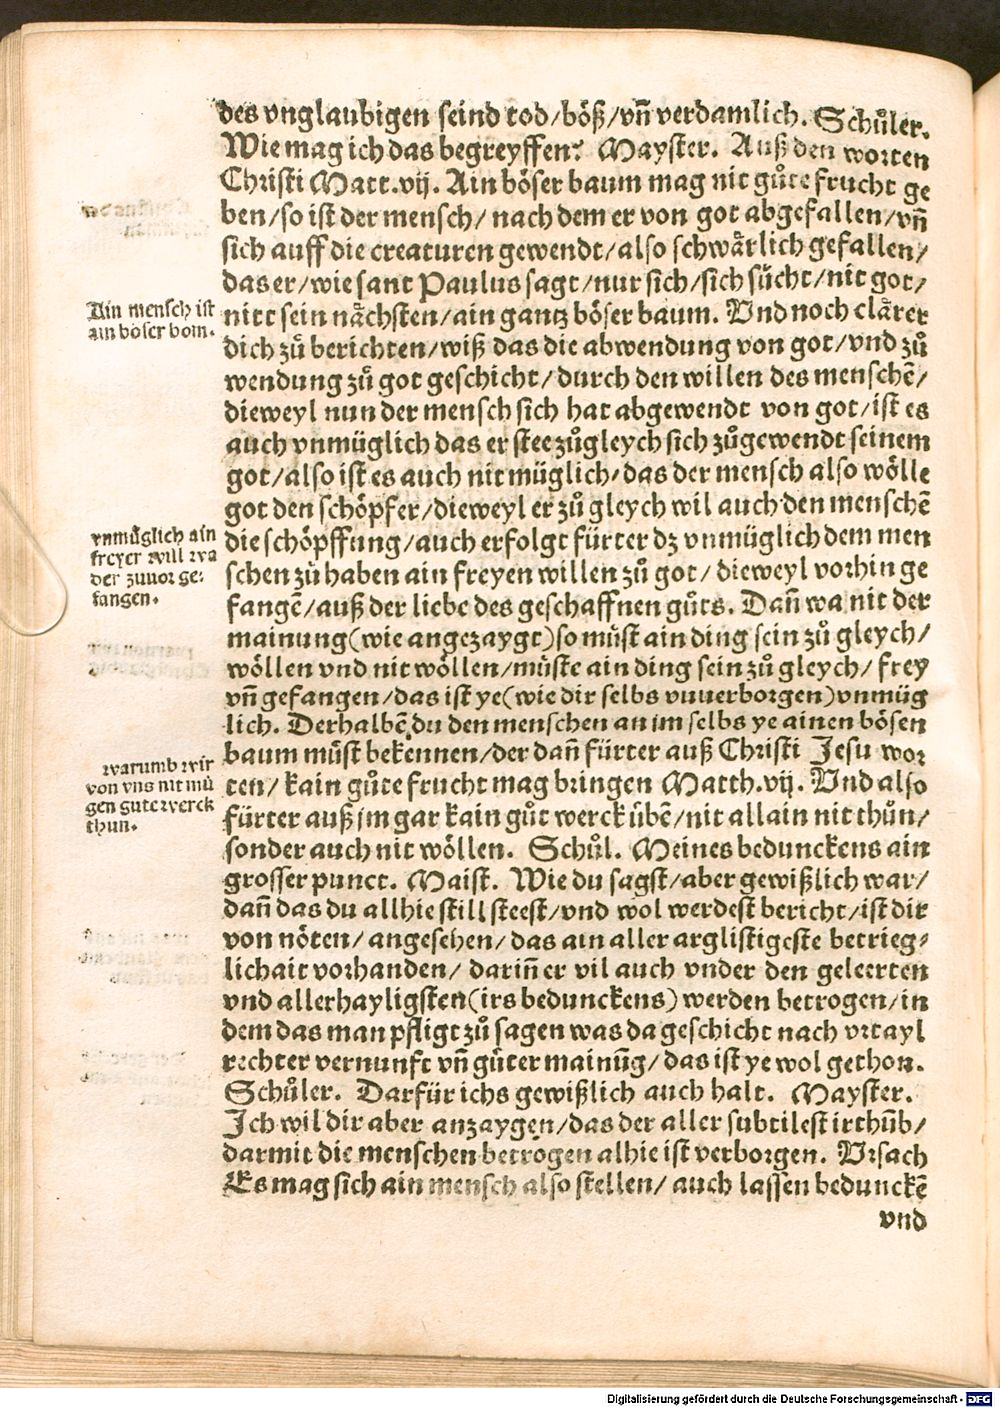 des vnglaubigen seind tod/böß/vn̄ verdamlich. Schůler.
Wie mag ich das begreyffen? Mayster. Auß den worten
Christi Matt.vij. Ain böser baum mag nit gůte frucht ge
ben/so ist der mensch/ nach dem er von got abgefallen/vn̄
sich auff die creaturen gewendt/also schwärlich gefallen/
das er/wie sant Paulus sagt/nur sich/sich sůcht/nit got/
Ain mensch ist
ain böser bom.
nitt sein nächsten/ain gantz böser baum. Vnd noch clärer
dich zů berichten/wiß das die abwendung von got/vnd zů
wendung zů got geschicht/durch den willen des menschē/
dieweyl nun der mensch sich hat abgewendt von got/ist es
auch vnmüglich das er stee zůgleych sich zůgewendt seinem
got/also ist es auch nit müglich/das der mensch also wölle
got den schöpfer/dieweyl er zů gleych wil auch den menschē
vnmüglich ain
freyer will wa
der zuuor ge-
fangen.
die schöpffung/auch erfolgt fürter dz vnmüglich dem men
schen zů haben ain freyen willen zů got/ dieweyl vorhin ge
fangē/auß der liebe des geschaffnen gůts. Dan̄ wa nit der
mainung(wie angezaygt)so můst ain ding sein zů gleych/
wöllen vnd nit wöllen/můste ain ding sein zů gleych/ frey
vn̄ gefangen/das ist ye(wie dir selbs vnuerborgen)vnmüg
lich. Derhalbē du den menschen an im selbs ye ainen bösen
baum můst bekennen/der dan̄ fürter auß Christi Jesu wor
warumb wir
von vns nit mü
gen gute werck
thun.
ten/ kain gůte frucht mag bringen Matth.vij. Vnd also
fürter auß jm gar kain gůt werck übē/nit allain nit thůn/
sonder auch nit wöllen. Schůl. Meines bedunckens ain
grosser punct. Maist. Wie du sagst/aber gewißlich war/
dan̄ das du allhie still steest/vnd wol werdest bericht/ist dir
von nöten/ angesehen/ das ain aller arglistigeste betrieg-
lichait vorhanden/ darin̄ er vil auch vnder den geleerten
vnd allerhayligsten(irs bedunckens)werden betrogen/in
dem das man pfligt zů sagen was da geschicht nach vrtayl
rechter vernunft vn̄ gůter mainūg/das ist ye wol gethon.
Schůler. Darfür ichs gewißlich auch halt. Mayster.
Ich wil dir aber anzaygen/das der aller subtilest irthūb/
darmit die menschen betrogen alhie ist verborgen. Vrsach
Es mag sich ain mensch also stellen/ auch lassen bedunckē
vnd
Digitalisierung gefördert durch die Deutsche Forschungsgemeinschaft - DFG